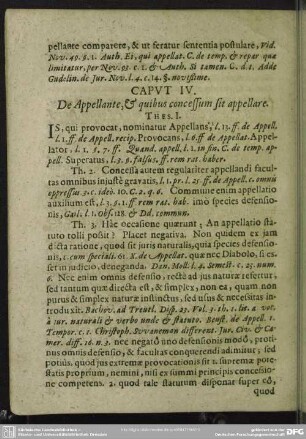 pellante comparere, & ut feratur sententia postulare, Vid.
Nov. 49. §. 1. Auth. Et, qui appellat. C. de temp. & repar. quæ
limitatur, per Nov. 93 c. 1. & Auth. Si tamen. C. d. t. Adde
Gudelin. de Jur. Nov. l. 4. c. 14. §. novissime.
CAPUT IV.
De Appellante, & quibus concessum sit appellare.
THES. I.
IS, qui provocat, nominatur Appellans, l. 13. ff. de Appell.
l. 1. ff. de Appell. recip. Provocans, l. 9 ff. de Appellat. Appel-
lator, l. 1. §. 7. ff. Quand. appell. l. 1. in fin. C. de temp. ap-
pell. Superatus, l. 3. §. falsus, ff. rem rat. haber.
Th. 2. Concessa autem regulariter appellandi facul-
tas omnibus injuste gravatis, l. 1. pr. l. 25. ff. de Appell. c. omnis
oppressus 3. c. ideò. 10. C. 2. q. 6. Commune enim appellatio
auxilium est, l. 3. §. 1. ff. rem rat. hab. imò species defensio-
nis, Gail. l. 1. Obs. 128. & Dd. commun.
Th. 3. Hâc occasione quærunt, An appellatio sta-
tuto tolli possit? Placet negativa. Non quidem ex jam
dicta ratione, quod sit juris naturalis, quia species defensio-
nis, c. cum speciali. 61. X. de Appellat. quæ nec Diabolo, si es-
ser in judicio, deneganda. Dan. Moll. l. 4. Semest. c. 25. num.
6. Nec enim omnis defensio, rectè ad jus naturæ refertur,
sed tantum quæ directa est, & simplex, non ea, quam non
purus & simplex naturæ instinctus, sed usus & necessitas in-
troduxit. Bachov. ad Treutl. Disp. 23. Vol. 3. th. 1. lit. a voc.
à jur. naturali & verbo unde & statuto. Borst. de Appell. t.
Tempor. c. 1. Christoph. Sovanemon different. Jur. Civ. & Ca-
mer. diff. 16. n. 3. nec negatô uno defensionis modô, proti-
nus omnis defensio, & facultas conquerendi adimitur, sed
potiùs, quod jus extremæ provocationis sit 1. supremæ pote-
statis proprium, nemini, nisi ex summi principis concessio-
ne competens. 2. quod tale statutum disponat super eô,
quod